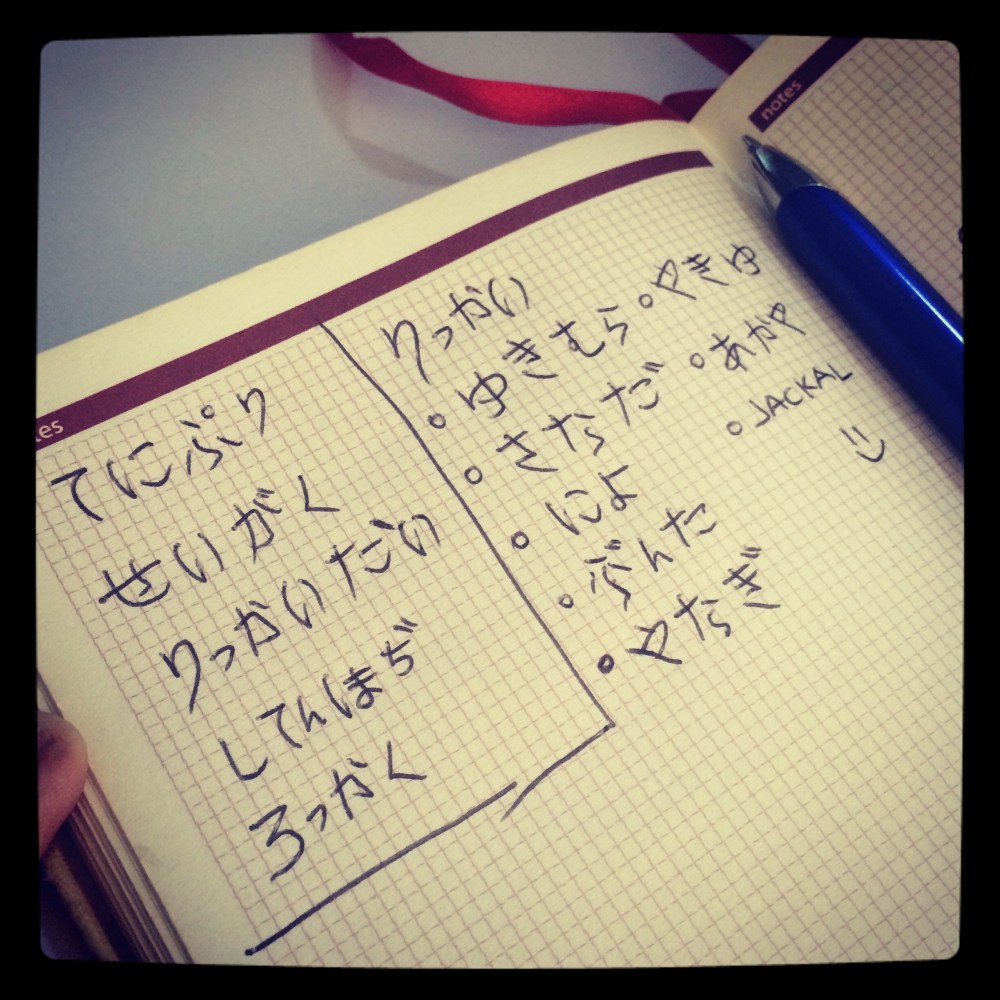 notes
tes
てにぷり
せいがく
りっかいだい
してんほまぢ
ろっかく
りっかい
ゆきむら
さなだ
によ
ぶんた
やなぎ
やぎゆ
あかや
JACKAL